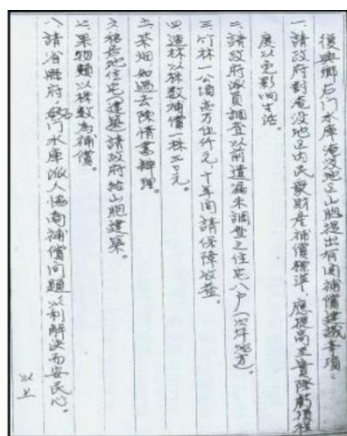 復興鄉石門水庫淹没地区山胞提出有関補償建議事項。
一、請政府對淹没地区内民衆財産補償標準應提高至實際舊價程
度以免影响生活。
二、請政府派員調查以前遺漏未調查之住宅八户
三、竹林一公頃壱万伍仟元十年間請保障收益。
四、造林以株数補償一株三〇元。
五、茶畑如過去陳情書辦理。
六、移居地住宅建築請政府給山胞建築。
七、果物類以株数為補償。
八、請省縣府石门水庫派人協商補償问題以利解决而安民心。
以上